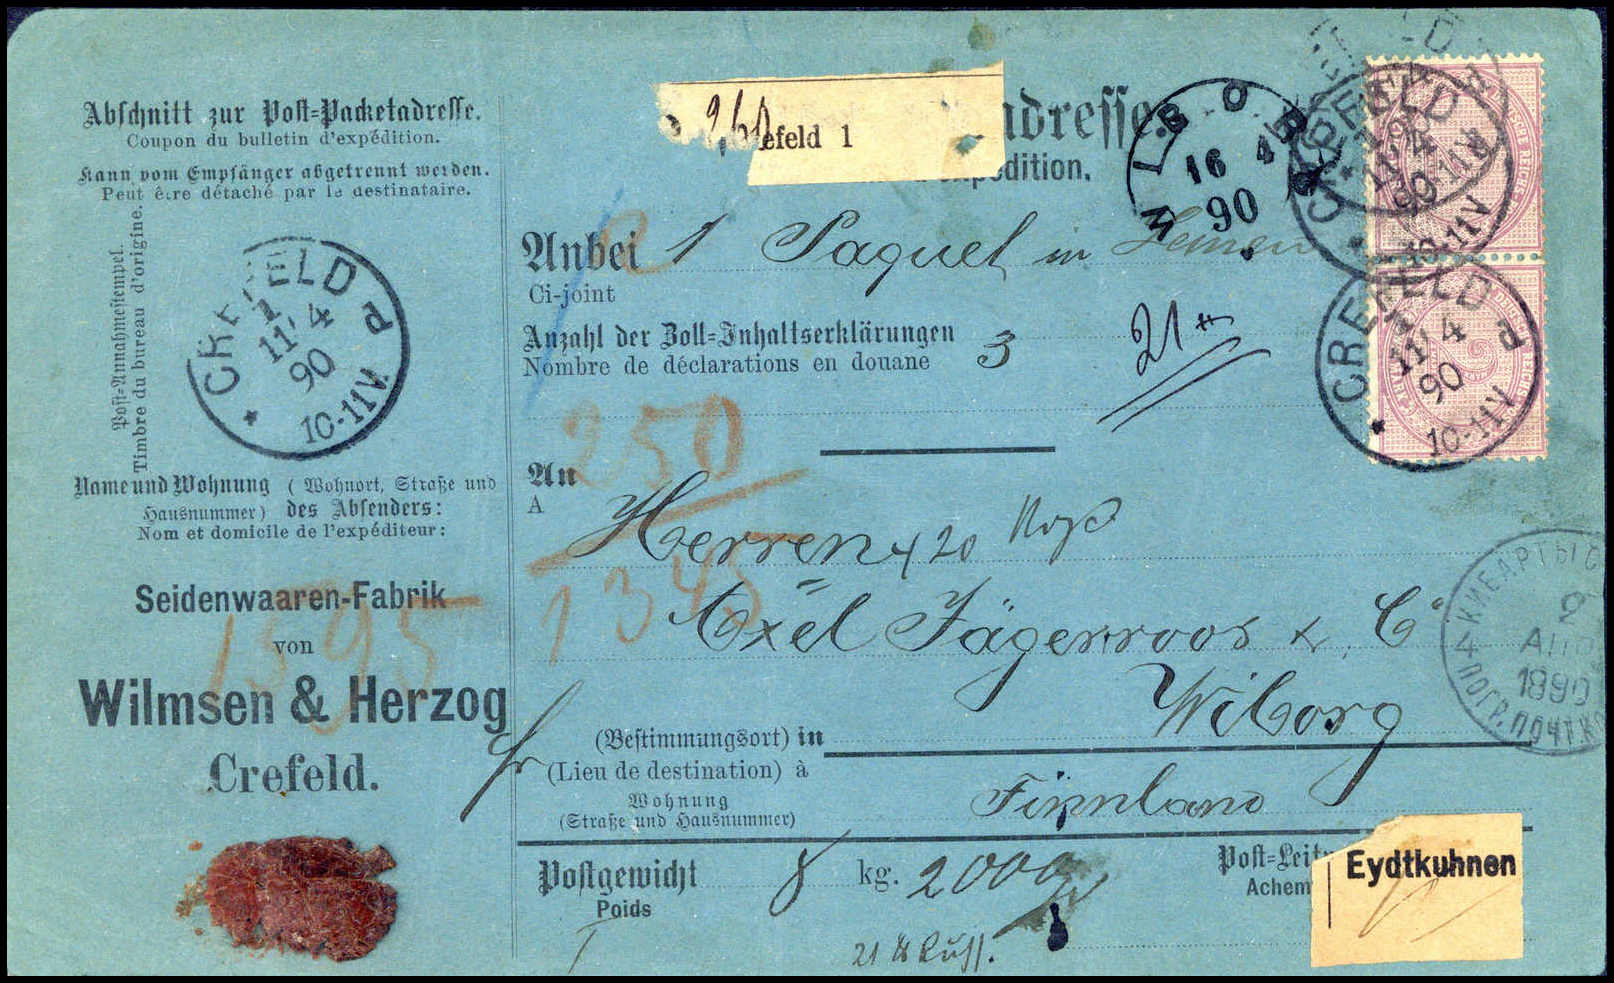 Abschnitt zur Post=Packetadresse.
Coupon du bulletin d'expédition.
Kann vom Empfänger abgetrennt werden.
Peut être détaché par le destinataire.
Post=Annahmestempel.
Timbre du bureau d'origine.
CREFELD
1
11/4
90
10-11V
d
Name und Wohnung (Wohnort, Straße und
Hausnummer) des Absenders:
Nom et domicile de l'expéditeur:
Seidenwaaren-Fabrik
von
Wilmsen & Herzog
Crefeld.
1595
260
efeld 1
adresse.
expédition.
WIBORG
16 4
90
CREFELD
11/4
90
10-11V
CREFELD
11/4
90
10-11V
d
Anbei 1 Paquet in Leinen
Ci-joint
Anzahl der Zoll=Inhaltserklärungen
Nombre de déclarations en douane 3
21
250
1345
An
A
Herren
Axel Jägerroos & Co
(Bestimmungsort) in Wiborg
(Lieu de destination) à
Wohnung
(Straße und Hausnummer)
Finnland
fr
КИБАРТЫ
1890
ПОГР. ПОЧТ. К
Postgewicht 8 kg. 2000 g
Poids
Post=Leit
Achem
Eydtkuhnen
21 ℔ Russ.